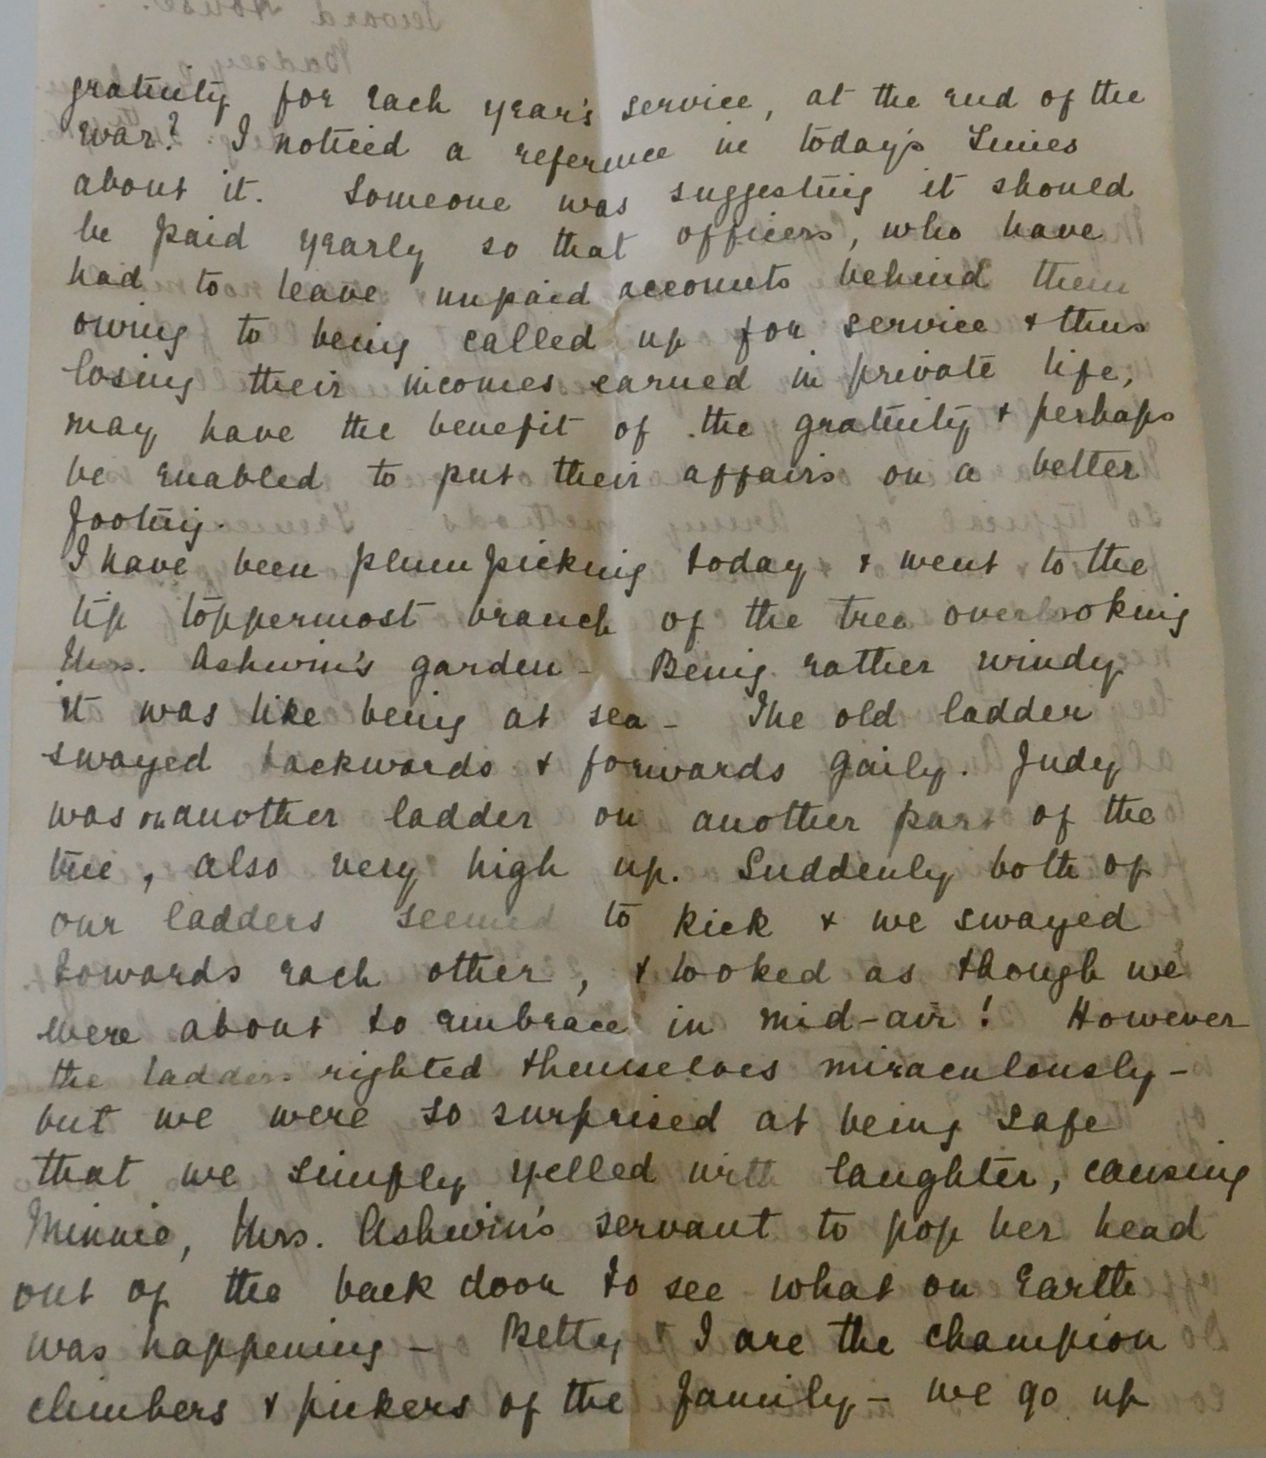 gratuity for each year's service, at the end of the
war? I noticed a reference in today's Times
about it. Someone was suggesting it should
be paid yearly so that officers, who have
had to leave unpaid accounts behind them
owing to being called up for service & thus
losing their incomes earned in private life,
may have the benefit of the gratuity & perhaps
be enabled to put their affairs on a better
footing.
I have been plum picking today & went to the
tip toppermost branch of the tree overlooking
Mrs. Ashwin's garden - Being rather windy
it was like being at sea - The old ladder
swayed backwards & forwards gaily. Judy
was on another ladder on another part of the
tree, also very high up. Suddenly both of
our ladders seemed to kick & we swayed
towards each other, & looked as though we
were about to embrace in mid-air! However
the ladders righted themselves miraculously -
but we were so surprised at being safe
that we simply yelled with laughter, causing
Minnie, Mrs. Ashwin's servant to pop her head
out of the back door to see what on Earth
was happening - Betty & I are the champion
climbers & pickers of the family - we go up